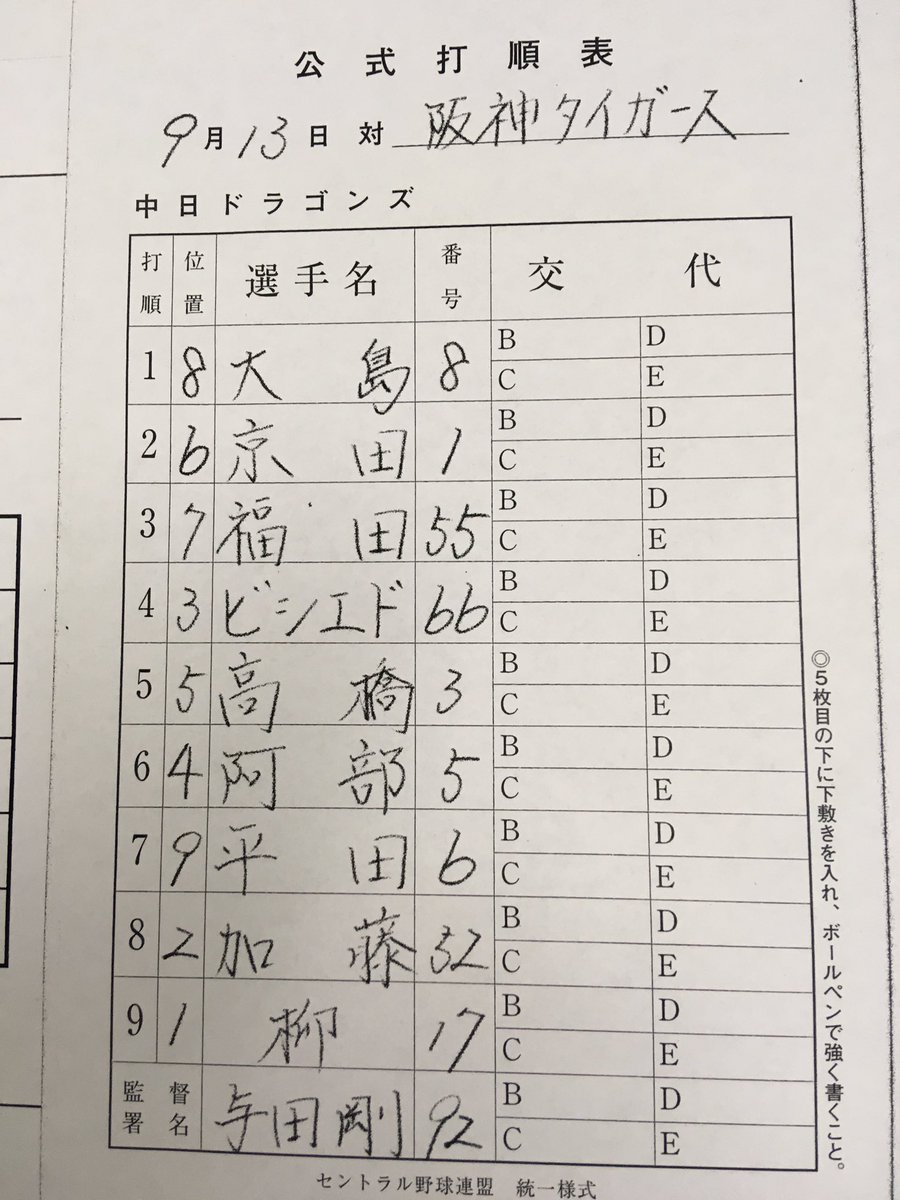 公式打順表
9月13日 対 阪神タイガース
中日ドラゴンズ
打順 位置 選手名 番号 交代
1 8 大島 8 B D C E
2 6 京田 1 B D C E
3 7 福田 55 B D C E
4 3 ビシエド 66 B D C E
5 5 高橋 3 B D C E
6 4 阿部 5 B D C E
7 9 平田 6 B D C E
8 2 加藤 32 B D C E
9 1 柳 17 B D C E
監督署名 与田剛 92 B D C E
◎5枚目の下に下敷きを入れ、ボールペンで強く書くこと。
セントラル野球連盟 統一様式